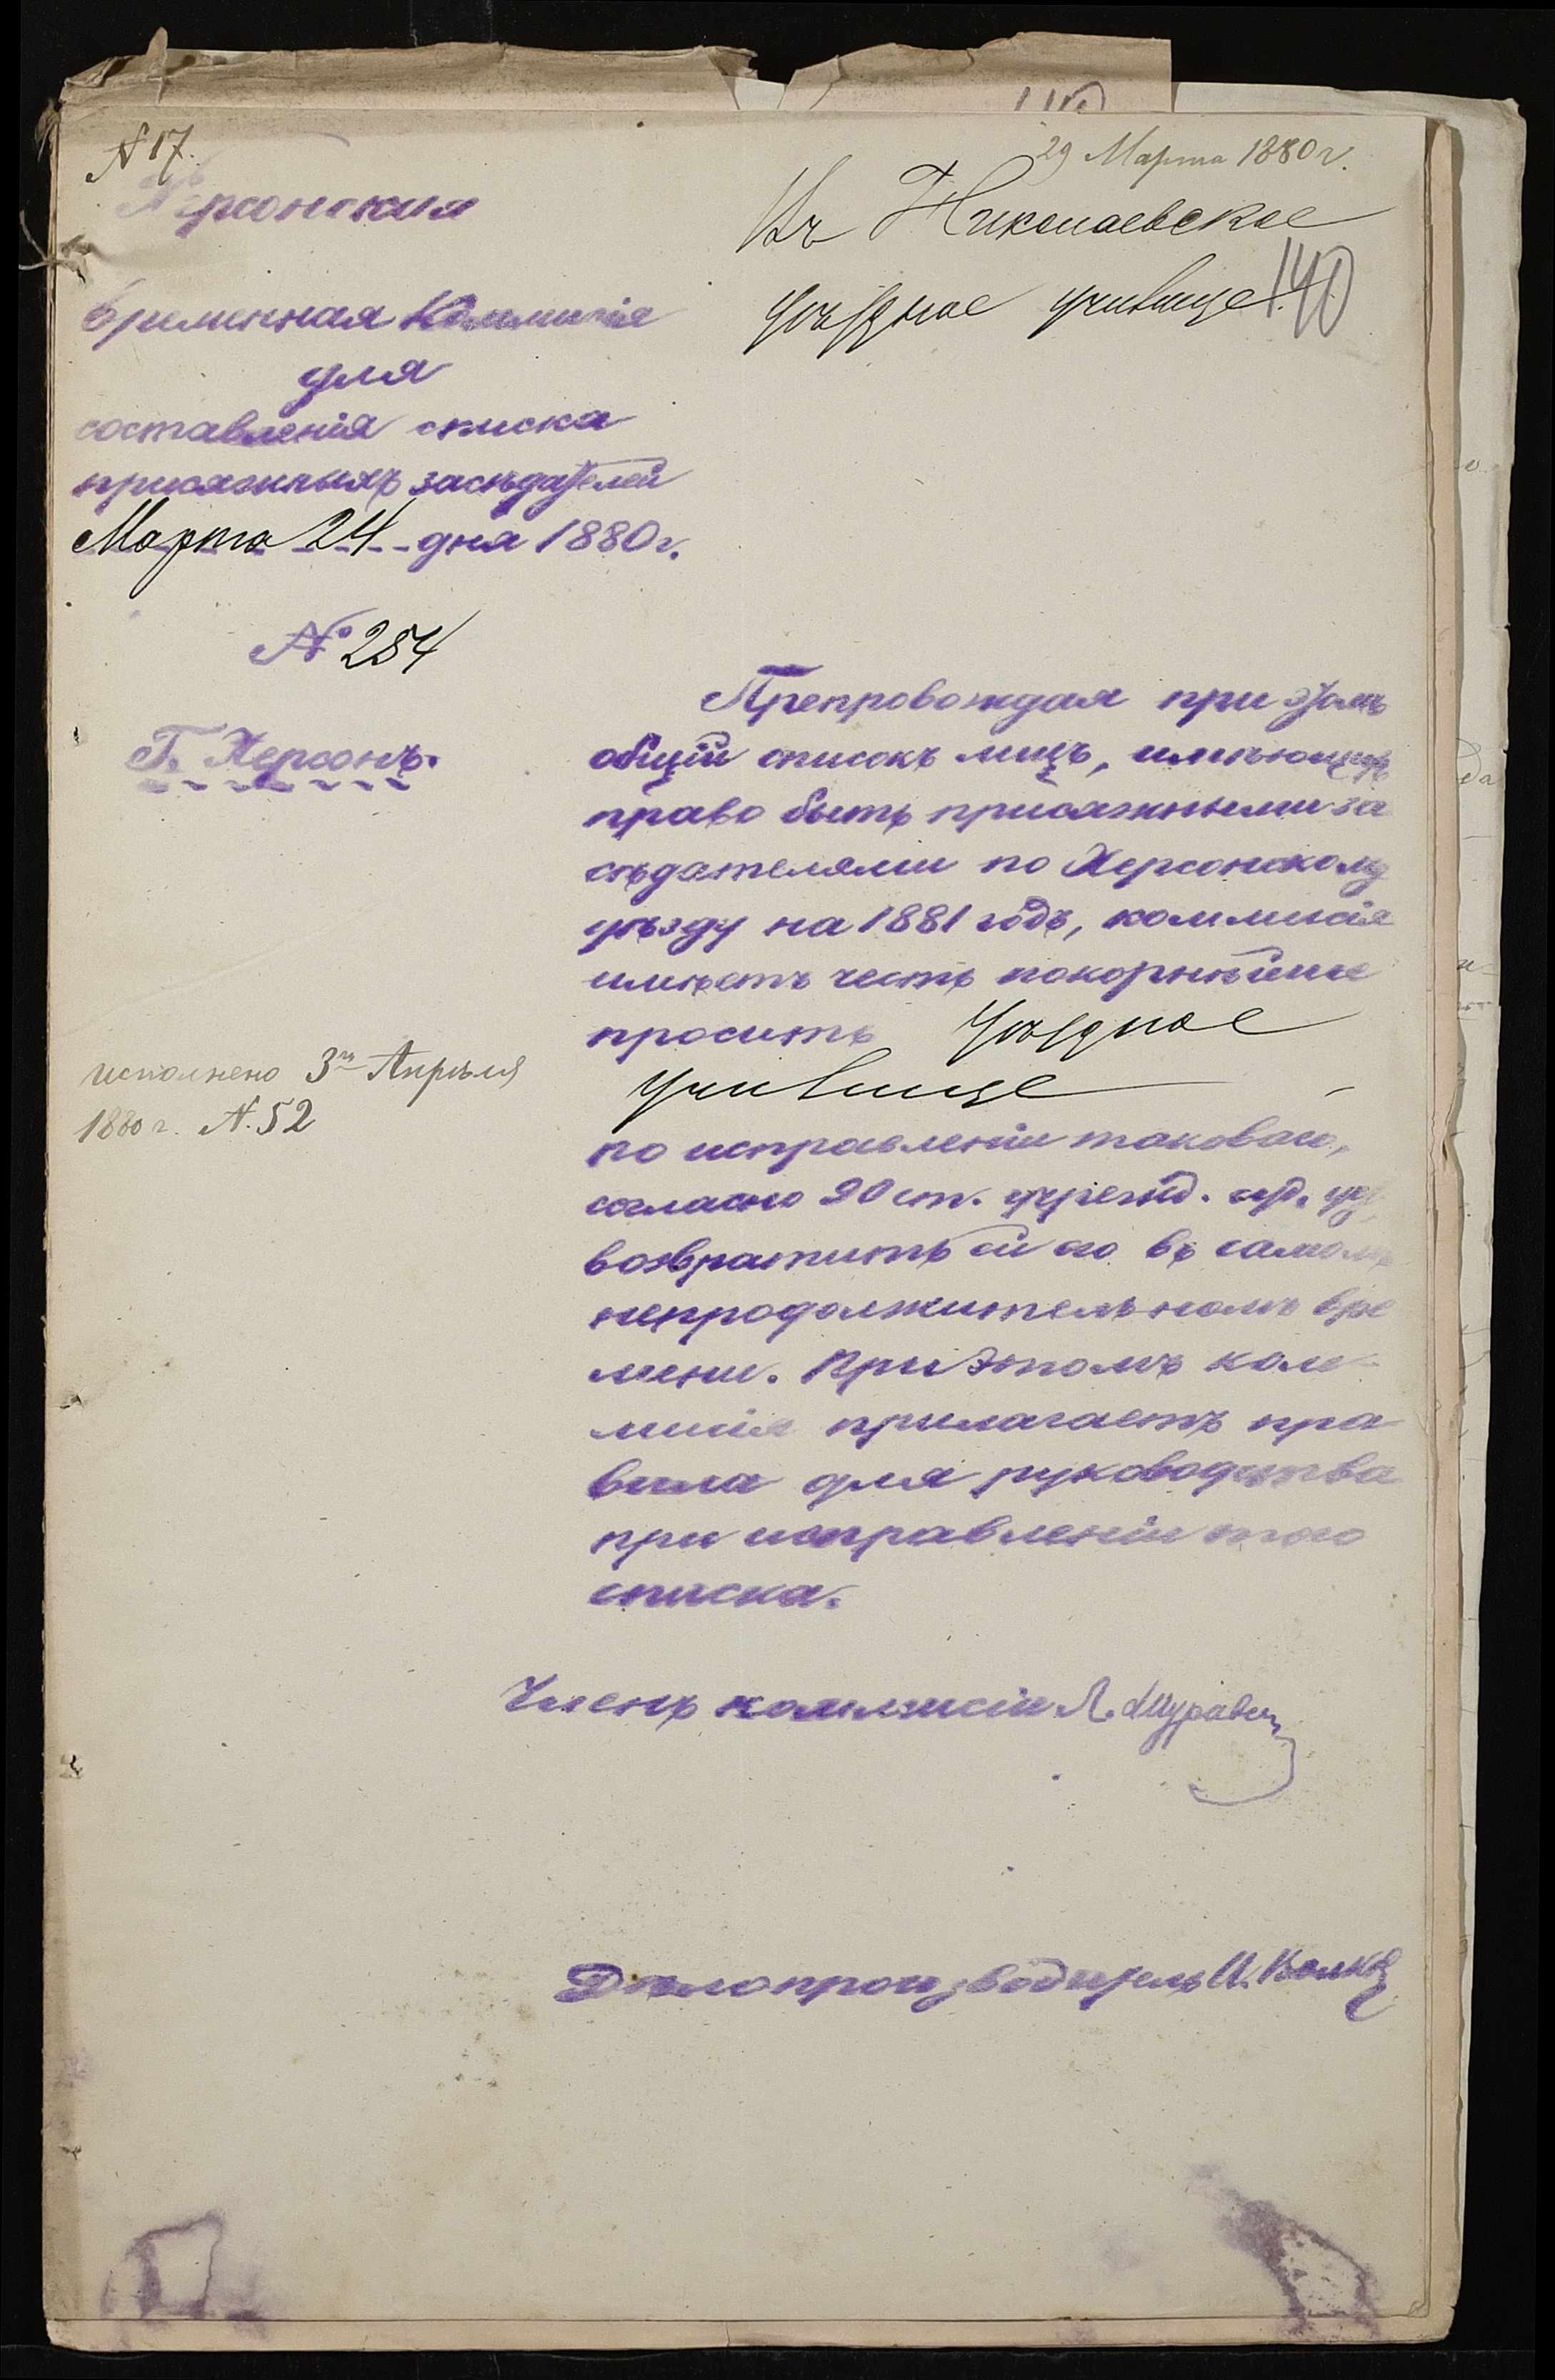 N 17.
29 Марта 1880 г.
Херсонская
временная Коммисія
для
составленія списка
присяжныхъ засѣдателей
Марта 24 дня 1880 г.
№ 254
Г. Херсонъ.
Въ Николаевское
уѣздное училище.
140
Препровождая при этомъ
общій списокъ лицъ, имѣющихъ
право быть присяжными за
сѣдателями по Херсонскому
уѣзду на 1881 годъ, коммисія
имѣетъ честь покорнѣйше
просить Уѣздное
училище
по исправленіи таковаго,
согласно 90 ст. учрежд. суд. уст.
возвратить ей его въ самомъ
непродолжительномъ вре
мени. При этомъ ком
мисія прилагаетъ пра
вила для руководства
при исправленіи того
списка.
исполнено 3го Апрѣля
1880 г. N. 52
Членъ коммисіи Л.
Дѣлопроизводитель И.